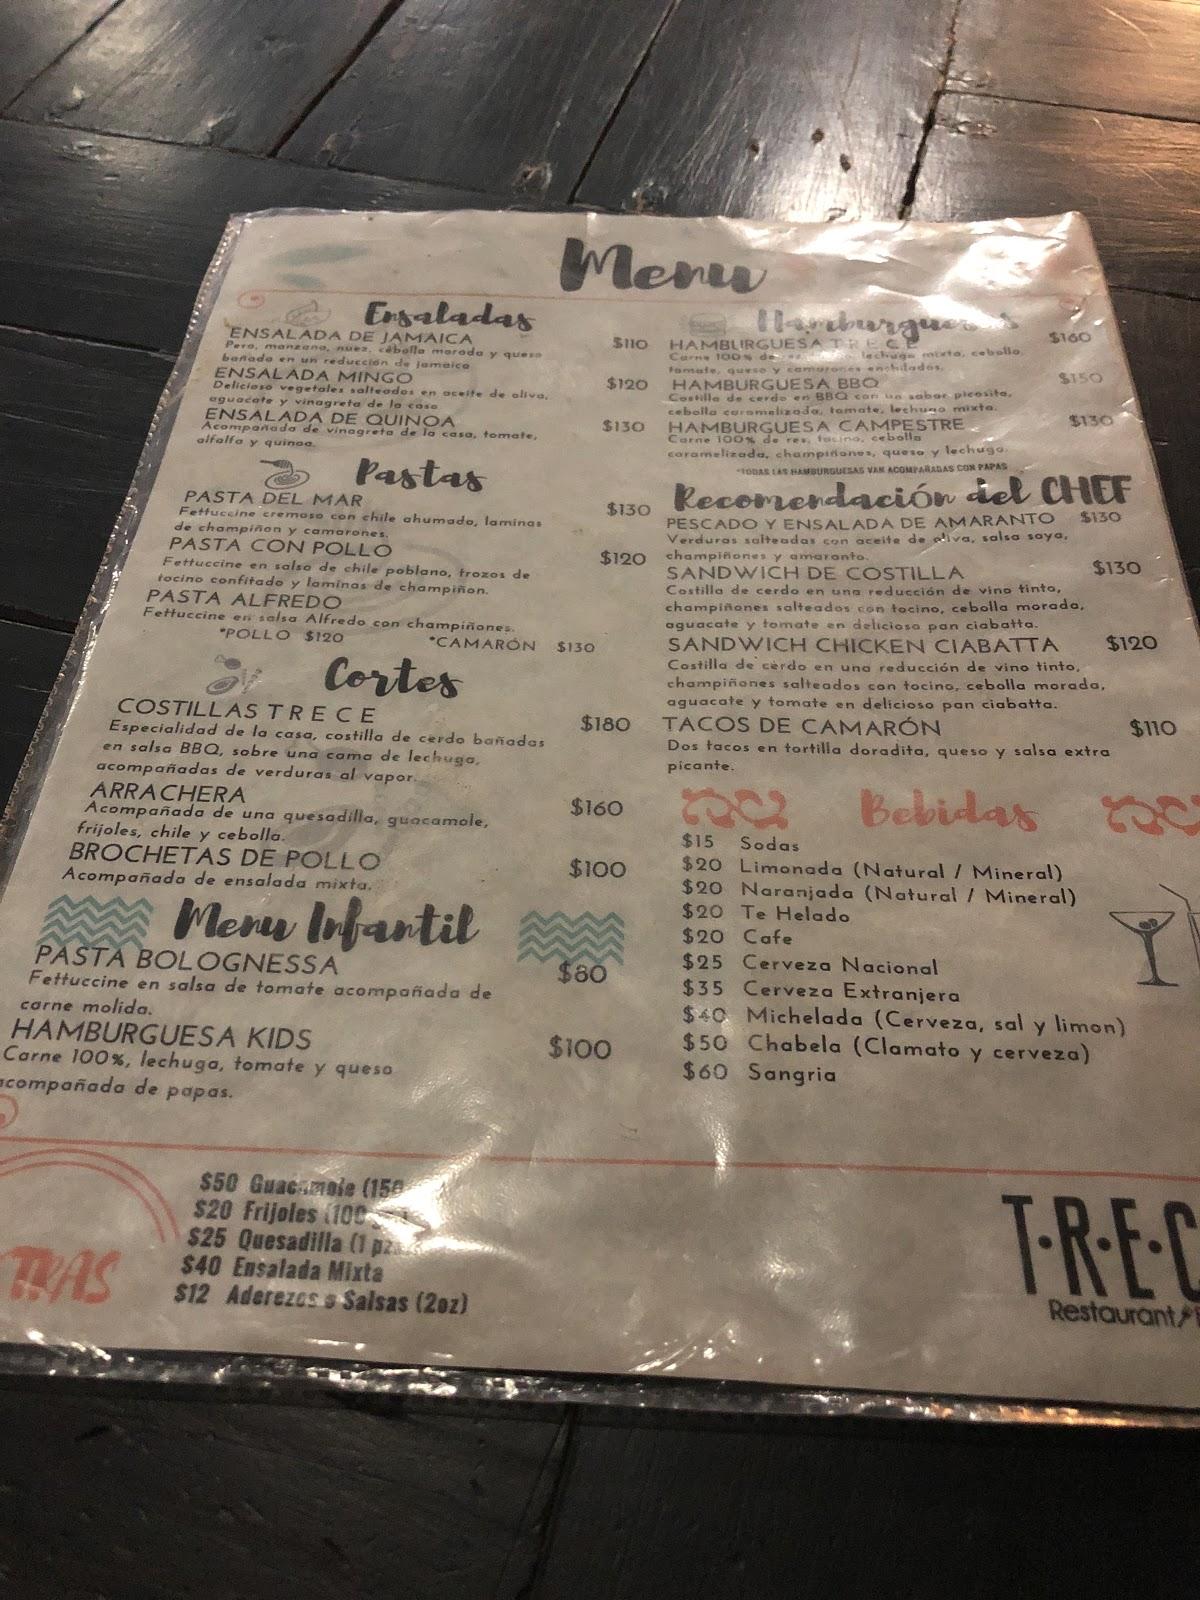 Menu
Ensaladas
ENSALADA DE JAMAICA $110
Pera, manzana, nuez, cebolla morada y queso
bañada en un reducción de jamaica
ENSALADA MINGO $120
Delicioso vegetales salteados en aceite de oliva,
aguacate y vinagreta de la casa
ENSALADA DE QUINOA $130
Acompañada de vinagreta de la casa, tomate,
alfalfa y quinoa.
Pastas
PASTA DEL MAR $130
Fettuccine cremoso con chile ahumado, laminas
de champiñon y camarones.
PASTA CON POLLO $120
Fettuccine en salsa de chile poblano, trozos de
tocino confitado y laminas de champiñon.
PASTA ALFREDO
Fettuccine en salsa Alfredo con champiñones.
*POLLO $120 *CAMARÓN $130
Cortes
COSTILLAS T R E C E $180
Especialidad de la casa, costilla de cerdo bañadas
en salsa BBQ, sobre una cama de lechuga,
acompañadas de verduras al vapor.
ARRACHERA $160
Acompañada de una quesadilla, guacamole,
frijoles, chile y cebolla.
BROCHETAS DE POLLO $100
Acompañada de ensalada mixta.
Menu Infantil
PASTA BOLOGNESSA $80
Fettuccine en salsa de tomate acompañada de
carne molida.
HAMBURGUESA KIDS $100
Carne 100%, lechuga, tomate y queso
acompañada de papas.
Hamburguesas
HAMBURGUESA T R E C E $160
Carne 100% de res, lechuga mixta, cebolla,
tomate, queso y camarones enchilados.
HAMBURGUESA BBQ $150
Costilla de cerdo en BBQ con un sabor picosito,
cebolla caramelizada, tomate, lechuga mixta.
HAMBURGUESA CAMPESTRE $130
Carne 100% de res, tocino, cebolla
caramelizada, champiñones, queso y lechuga.
*TODAS LAS HAMBURGUESAS VAN ACOMPAÑADAS CON PAPAS
Recomendación del CHEF
PESCADO Y ENSALADA DE AMARANTO $130
Verduras salteadas con aceite de oliva, salsa soya,
champiñones y amaranto.
SANDWICH DE COSTILLA $130
Costilla de cerdo en una reducción de vino tinto,
champiñones salteados con tocino, cebolla morada,
aguacate y tomate en delicioso pan ciabatta.
SANDWICH CHICKEN CIABATTA $120
Costilla de cerdo en una reducción de vino tinto,
champiñones salteados con tocino, cebolla morada,
aguacate y tomate en delicioso pan ciabatta.
TACOS DE CAMARÓN $110
Dos tacos en tortilla doradita, queso y salsa extra
picante.
Bebidas
$15 Sodas
$20 Limonada (Natural / Mineral)
$20 Naranjada (Natural / Mineral)
$20 Te Helado
$20 Cafe
$25 Cerveza Nacional
$35 Cerveza Extranjera
$40 Michelada (Cerveza, sal y limon)
$50 Chabela (Clamato y cerveza)
$60 Sangria
TRAS
$50 Guacamole (150
$20 Frijoles (100
$25 Quesadilla (1 pz
$40 Ensalada Mixta
$12 Aderezos o Salsas (2oz)
T·R·E·C
Restaurant